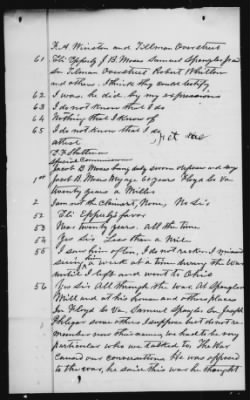 F. A. Winston and Tillman Overstreet
61 Eli Epperly J B. Moses Samuel Spangler
Tilman Overstreet Robert Whitlow
and others. I think they could testify
62 I was. he did by my expressions
63 I do not know that I do
64 Nothing that I know of
65 I do not know that I do
attest
Special Commissioner
Jacob B Moses being duly sworn deposes and say
1st Jacob B. Moses My age 60 years Floyd Co Va
twenty years a Miller
2 I am not the Claimant, None, No Sir
52 Eli Epperlys favor
53 Near twenty years. all the time
54 Yes Sir Less than a Mile
55 I saw him often, I do not reckon I missed
seeing him a week at a time during the War
until I left and went to Ohio
56 Yes Sir All through the War. At Spangler
Mill and at his house and other places
in Floyd Co Va, Samuel Spangler Sr. Joseph
Phleger some others I suppose but do not re-
member now their names, we had to be very
particular who we talked to, The War
Caused our conversations He was opposed
to the war, he said this war he thought